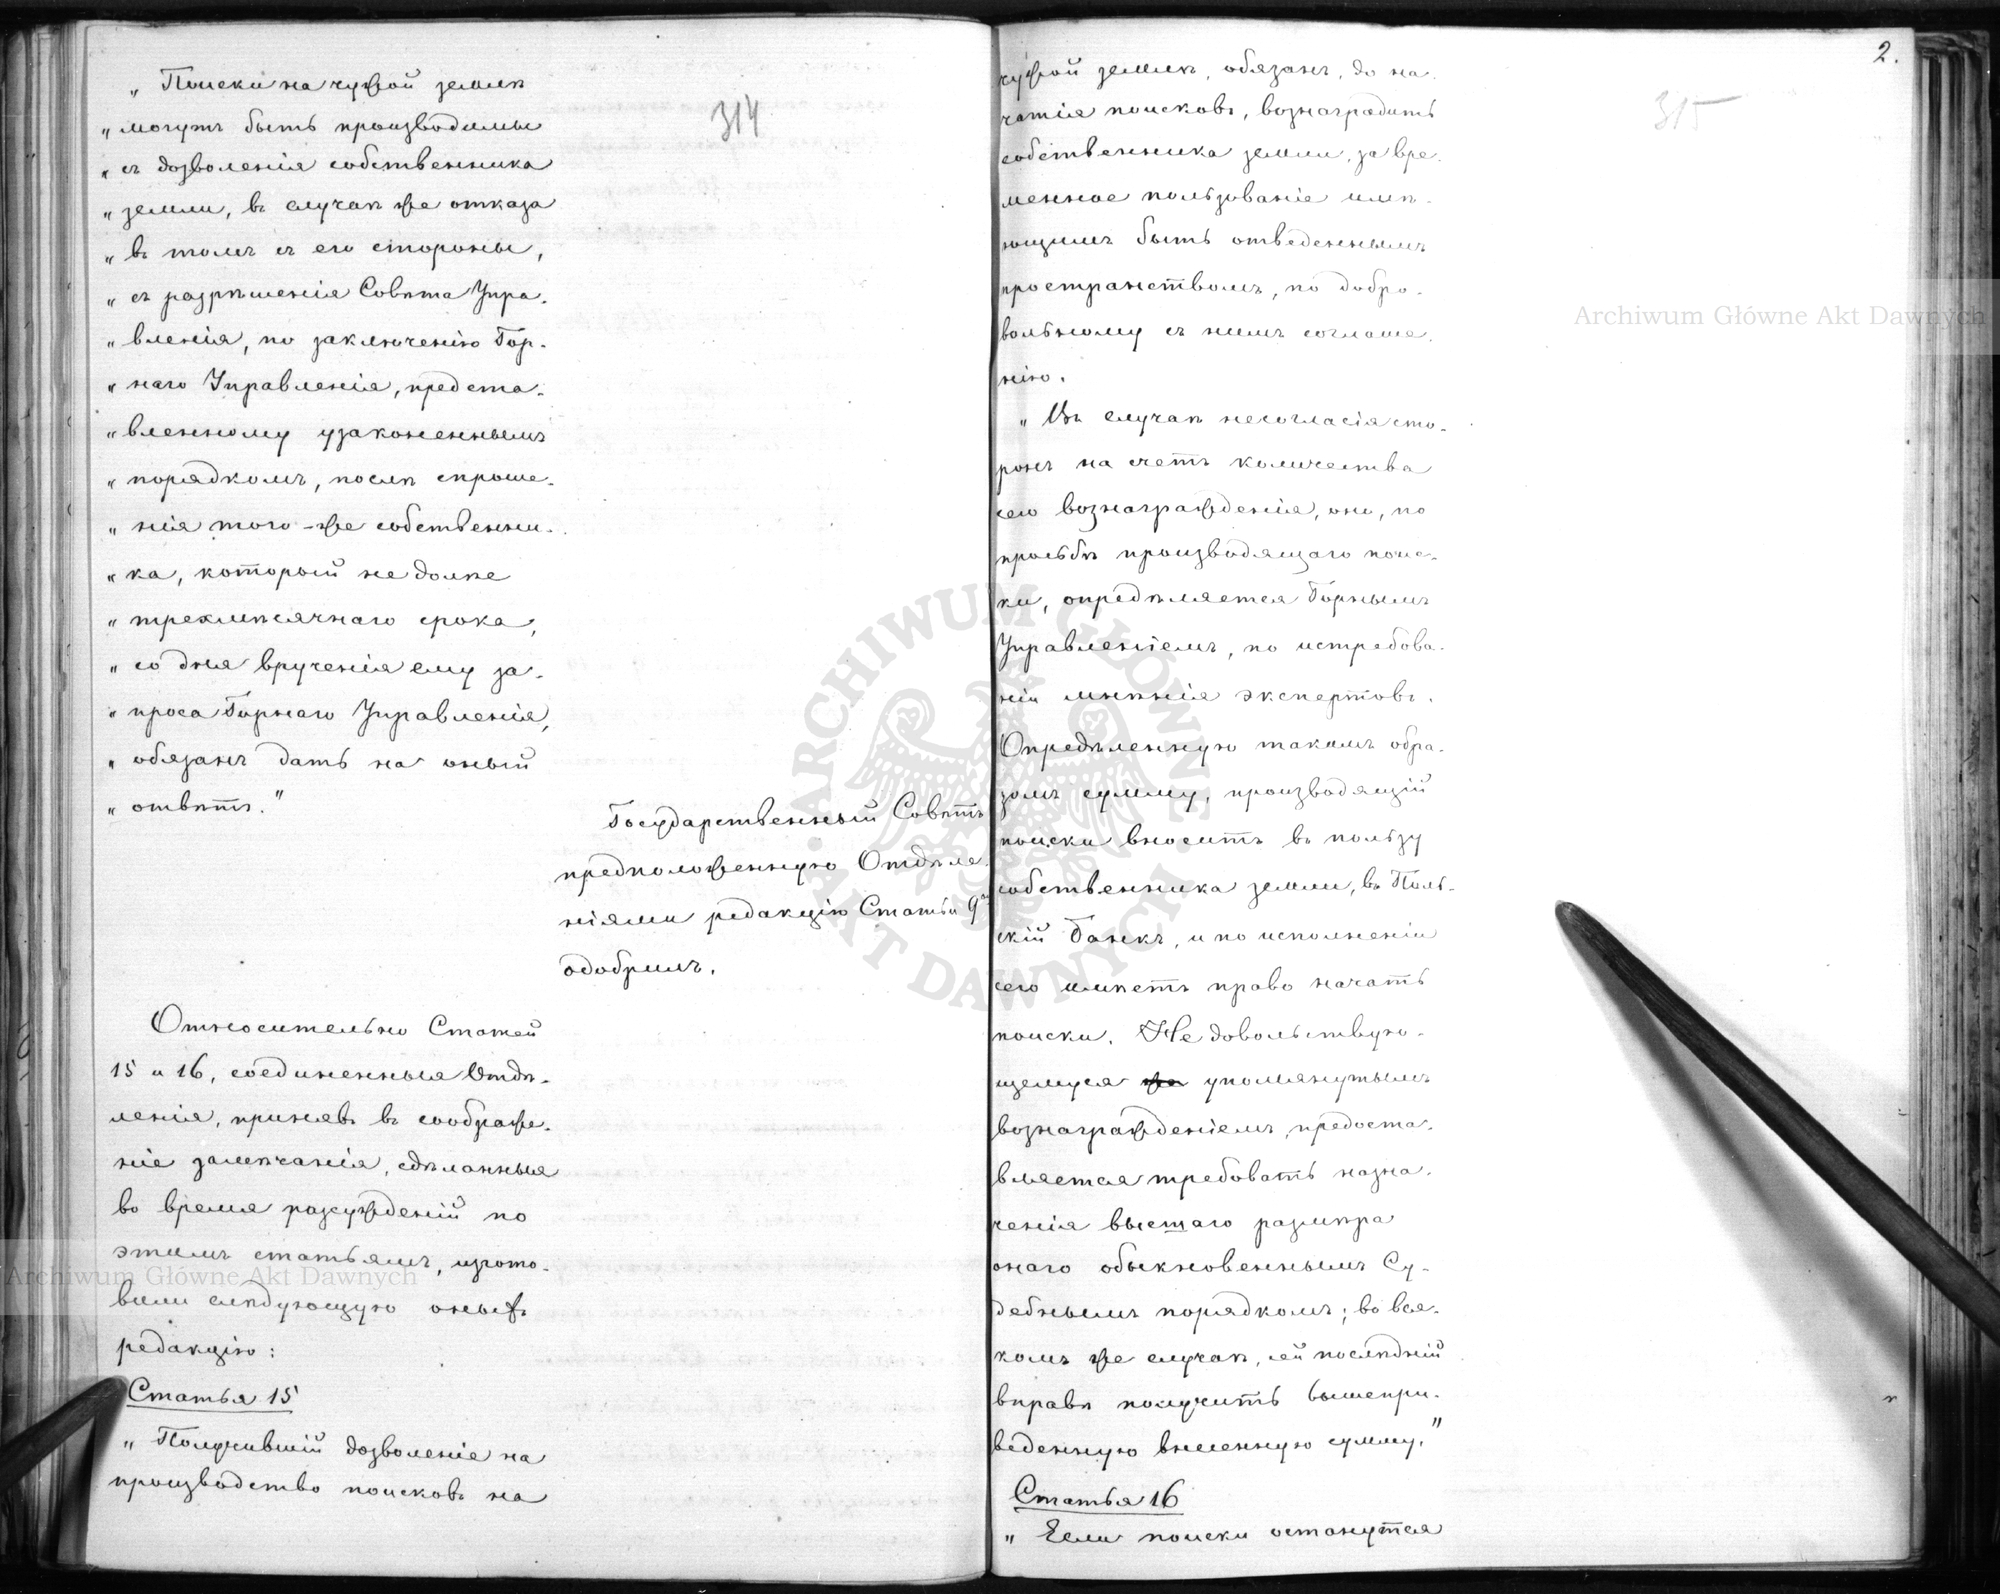 314
„ Поиски на чужой землѣ
„ могутъ быть производимы
„ съ дозволенія собственника
„ земли, въ случаѣ же отказа
„ въ томъ съ его стороны,
„ съ разрѣшенія Совѣта Упра-
„ вленія, по заключенію Гор-
„ наго Управленія, предста-
„ вленному узаконеннымъ
„ порядкомъ, послѣ спроше-
„ нія того-же собственни-
„ ка, который не долѣе
„ трехмѣсячнаго срока,
„ со дня врученія ему за-
„ проса Горнаго Управленія,
„ обязанъ дать на оный
„ отвѣтъ."
Государственный Совѣтъ
предположенную Отдѣле-
ніями редакцію Статьи 9ой
одобрилъ.
Относительно Статей
15 и 16, соединенныя Отдѣ-
ленія, принявъ въ соображе-
ніе замѣчанія, сдѣланныя
во время разсужденій по
этимъ статьямъ, изгото-
вили слѣдующую оныхъ
редакцію:
Статья 15
„ Получившій дозволеніе на
производство поисковъ на
2.
315
чужой землѣ, обязанъ, до на-
чатія поисковъ, вознаградить
собственника земли, за вре-
менное пользованіе имѣ-
ющимъ быть отведеннымъ
пространствомъ, по добро-
вольному съ нимъ соглаше-
нію.
„ Въ случаѣ несогласія сто-
ронъ на счетъ количества
сего вознагражденія, оно, по
просьбѣ производящаго поис-
ки, опредѣляется Горнымъ
Управленіемъ, по истребова-
ніи мнѣнія экспертовъ.
Опредѣленную такимъ обра-
зомъ сумму, производящій
поиски вноситъ въ пользу
собственника земли, въ Поль-
скій Банкъ, и по исполненіи
сего имѣетъ право начать
поиски. Не довольствую-
щемуся упомянутымъ
вознагражденіемъ, предоста-
вляется требовать назна-
ченія высшаго размѣра
онаго обыкновеннымъ Су-
дебнымъ порядкомъ; во вся-
комъ же случаѣ, сей послѣдній
вправѣ получить вышепри-
веденную внесенную сумму."
Статья 16
„ Если поиски останутся
Archiwum Główne Akt Dawnych
Archiwum Główne Akt Dawnych
ARCHIWUM GŁÓWNE
AKT DAWNYCH